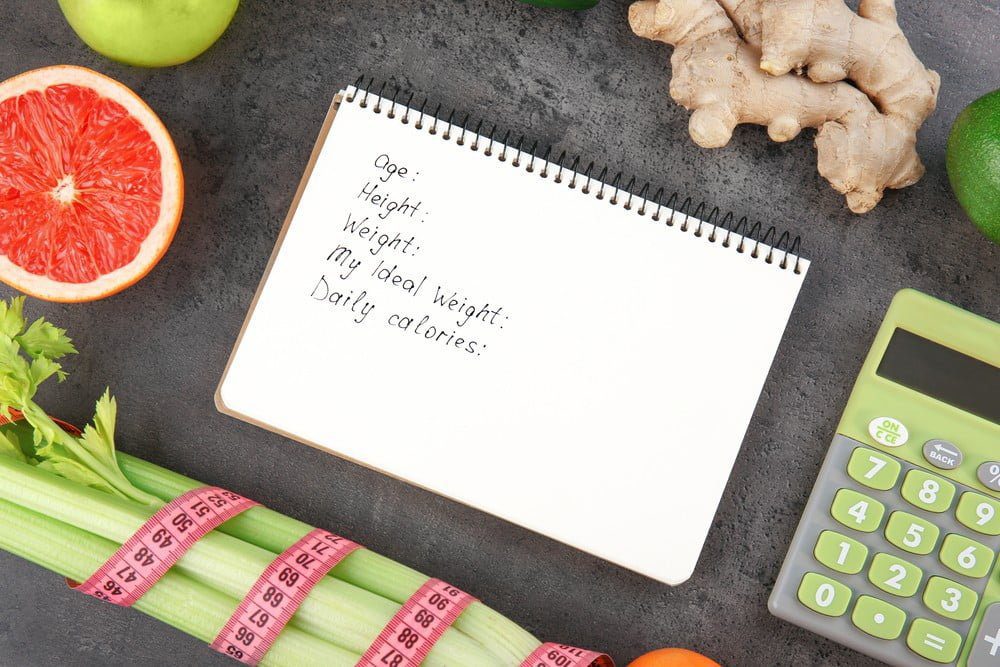 Age:
Height:
Weight:
My Ideal Weight:
Daily calories:
ON
C·CE
BACK
%
7 8 9
4 5 6
1 2 3
0 . = +
46 47 48 49 50 51 52
66 67 68 69 70 71
87 88 89 90
109